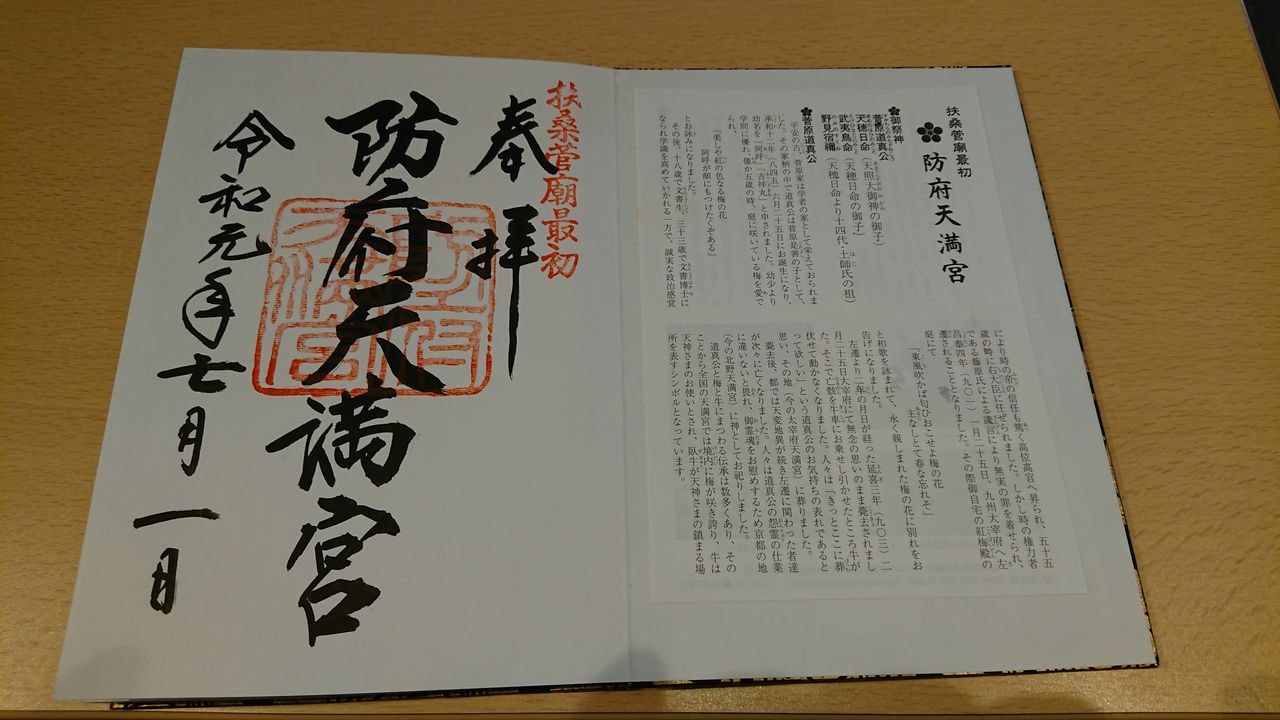 扶桑菅廟最初
防府天満宮
御祭神
菅原道真公
天穂日命（天照大御神の御子）
武夷鳥命（天穂日命の御子）
野見宿禰（天穂日命より十四代・土師氏の祖）
菅原道真公
平安の古、菅原家は学者の家として栄えておられま
した。その家柄の中で道真公は菅原是善の子として、
承和十二年（八四五）六月二十五日にお誕生になり、
幼名を「阿呼」「吉祥丸」と申されました。幼少より
学問に優れ、僅か五歳の時、庭に咲いている梅を愛で
られ、
「美しや紅の色なる梅の花
阿呼が顔にもつけたくぞある」
とお詠みになりました。
その後、十八歳で文書生、三十三歳で文書博士に
なられ学識を高めていかれる一方で、誠実な政治感覚
により時の帝の信任も篤く高位高官へ昇られ、五十五
歳の時に右大臣に任ぜられました。しかし時の権力者
である藤原氏による讒言により無実の罪を着せられ、
昌泰四年（九〇一）一月二十五日、九州大宰府へ左
遷されることとなりました。その際御自宅の紅梅殿の
庭にて
「東風吹かば匂ひおこせよ梅の花
主なしとて春な忘れそ」
と和歌を詠まれて、永く親しまれた梅の花に別れをお
告げになりました。
左遷より二年の月日が経った延喜三年（九〇三）二
月二十五日大宰府にて無念の思いのまま薨去されまし
た。そこで亡骸を牛車にお乗せし引かせたところ牛が
伏せて動かなくなりました。人々は「きっとここに葬
って欲しい」という道真公のお気持ちの表れであると
思い、その地（今の太宰府天満宮）に葬りました。
薨去後、都では天変地異が続き左遷に関わった者達
が次々に亡くなりました。人々は道真公の怨霊の仕業
に違いないと畏れ、御霊魂をお慰めするため京都の地
（今の北野天満宮）に神としてお祀りしました。
道真公と梅と牛にまつわる伝承は数多くあり、その
ことから全国の天満宮では境内に梅が咲き誇り、牛は
天神さまのお使いとされ、臥牛が天神さまの鎮まる場
所を表すシンボルとなっています。
扶桑菅廟最初
奉拝
防府天満宮
令和元年七月一日